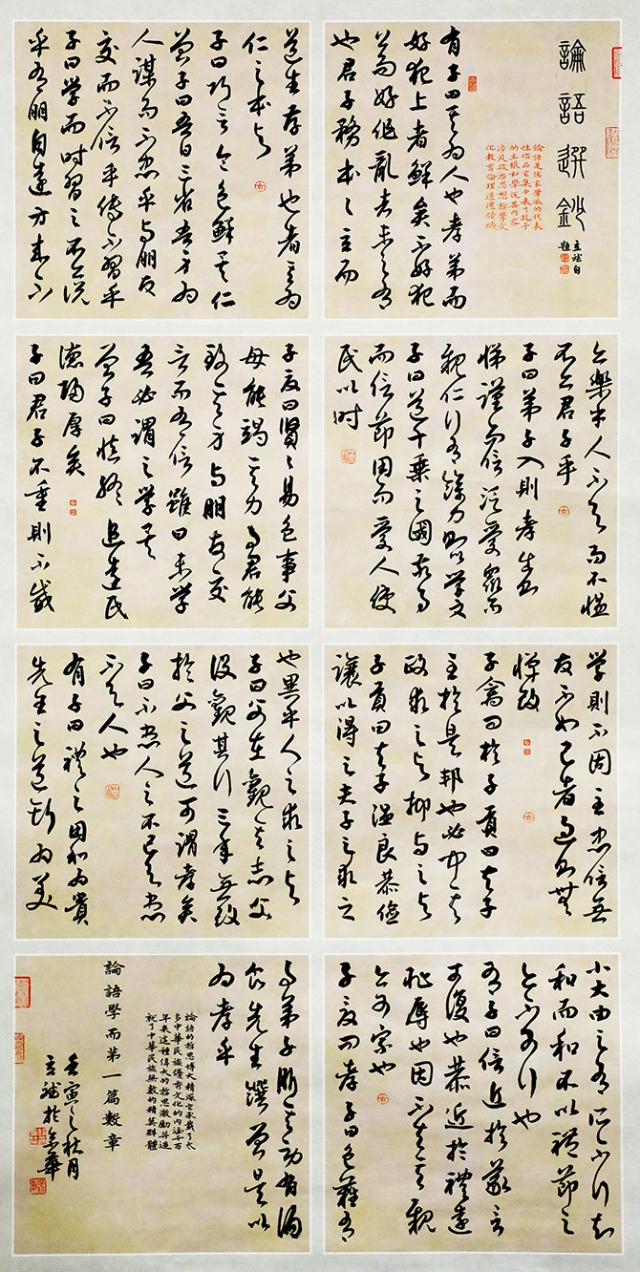 論語選鈔
立斌自
題
論語是儒家學派的代表
性作品它集中表了孔子
的主張和學說其內容
涉及政治思想哲學文
化教育倫理道德領域
有子曰其為人也孝弟而
好犯上者鮮矣不好犯
上而好作亂者未之有
也君子務本〻立而
道生孝弟也者其為
仁之本與
子曰巧言令色鮮矣仁
曾子曰吾日三省吾身為
人謀而不忠乎與朋友
交而不信乎傳不習乎
子曰學而時習之不亦說
乎有朋自遠方來不
亦樂乎人不知而不慍
不亦君子乎
子曰弟子入則孝出則
悌謹而信泛愛眾而
親仁行有餘力則以學文
子曰道千乘之國敬事
而信節用而愛人使
民以時
子夏曰賢〻易色事父
母能竭其力事君能
致其身與朋友交
言而有信雖曰未學
吾必謂之學矣
曾子曰慎終追遠民
德歸厚矣
子曰君子不重則不威
學則不固主忠信無
友不如己者過則無
憚改
子禽問於子貢曰夫子
至於是邦也必聞其
政求之與抑與之與
子貢曰夫子溫良恭儉
讓以得之夫子之求之
也異乎人之求之與
子曰父在觀其志父
沒觀其行三年無改
於父之道可謂孝矣
子曰不患人之不己知患
不知人也
有子曰禮之用和為貴
先王之道斯為美
小大由之有所不行知
和而和不以禮節之
亦不可行也
有子曰信近於義言
可復也恭近於禮遠
恥辱也因不失其親
亦可宗也
子夏問孝子曰色難有
事弟子服其勞有酒
食先生饌曾是以
為孝乎
論語的哲思博大精深它承載了太
多中華民族優秀文化的內涵千百
年來這種偉大的哲思激勵并造
就了中華民族無數的精英群體
論語學而第一篇數章
壬寅之秋月
立斌於京華